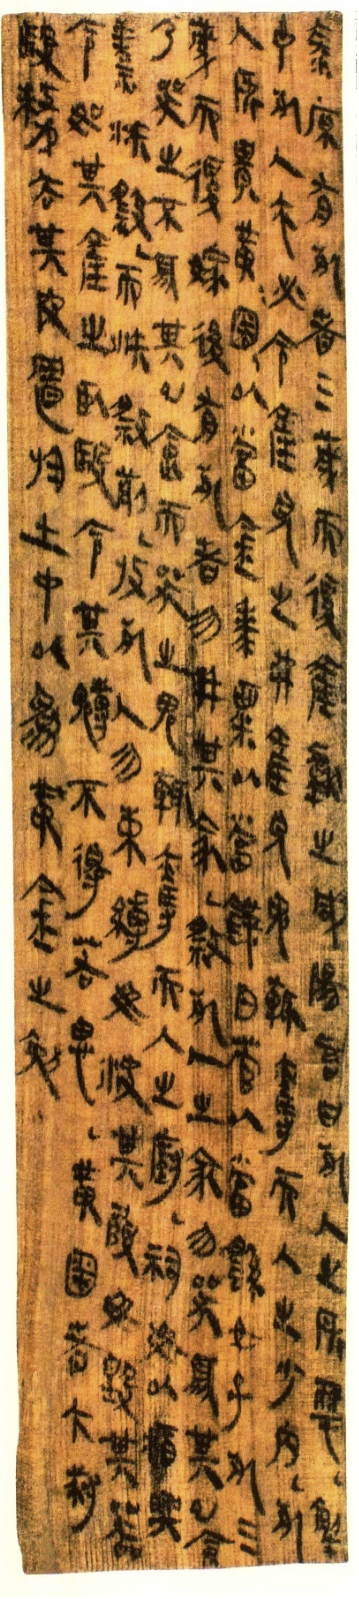 泰原有死者三歲而復產獻之咸陽言曰死人之所惡解
予死人衣必令產見之弗產見鬼輒奪而入之少內死
人所貴黃圈以當金黍粟以當錢白菅以當繇女子死三
歲而復嫁後有死者勿并其冢祭死人之冢勿哭須其已食
乃哭之不須其已食而哭之鬼輒奪而入之廚祠毋以
沃祭而沃祭前收死人勿束縛毋決其履毋毀其器
令如其產之卧殹令其魄不得茖思黃圈者大叔
殹剝去其皮置於土中以為黃金之勉